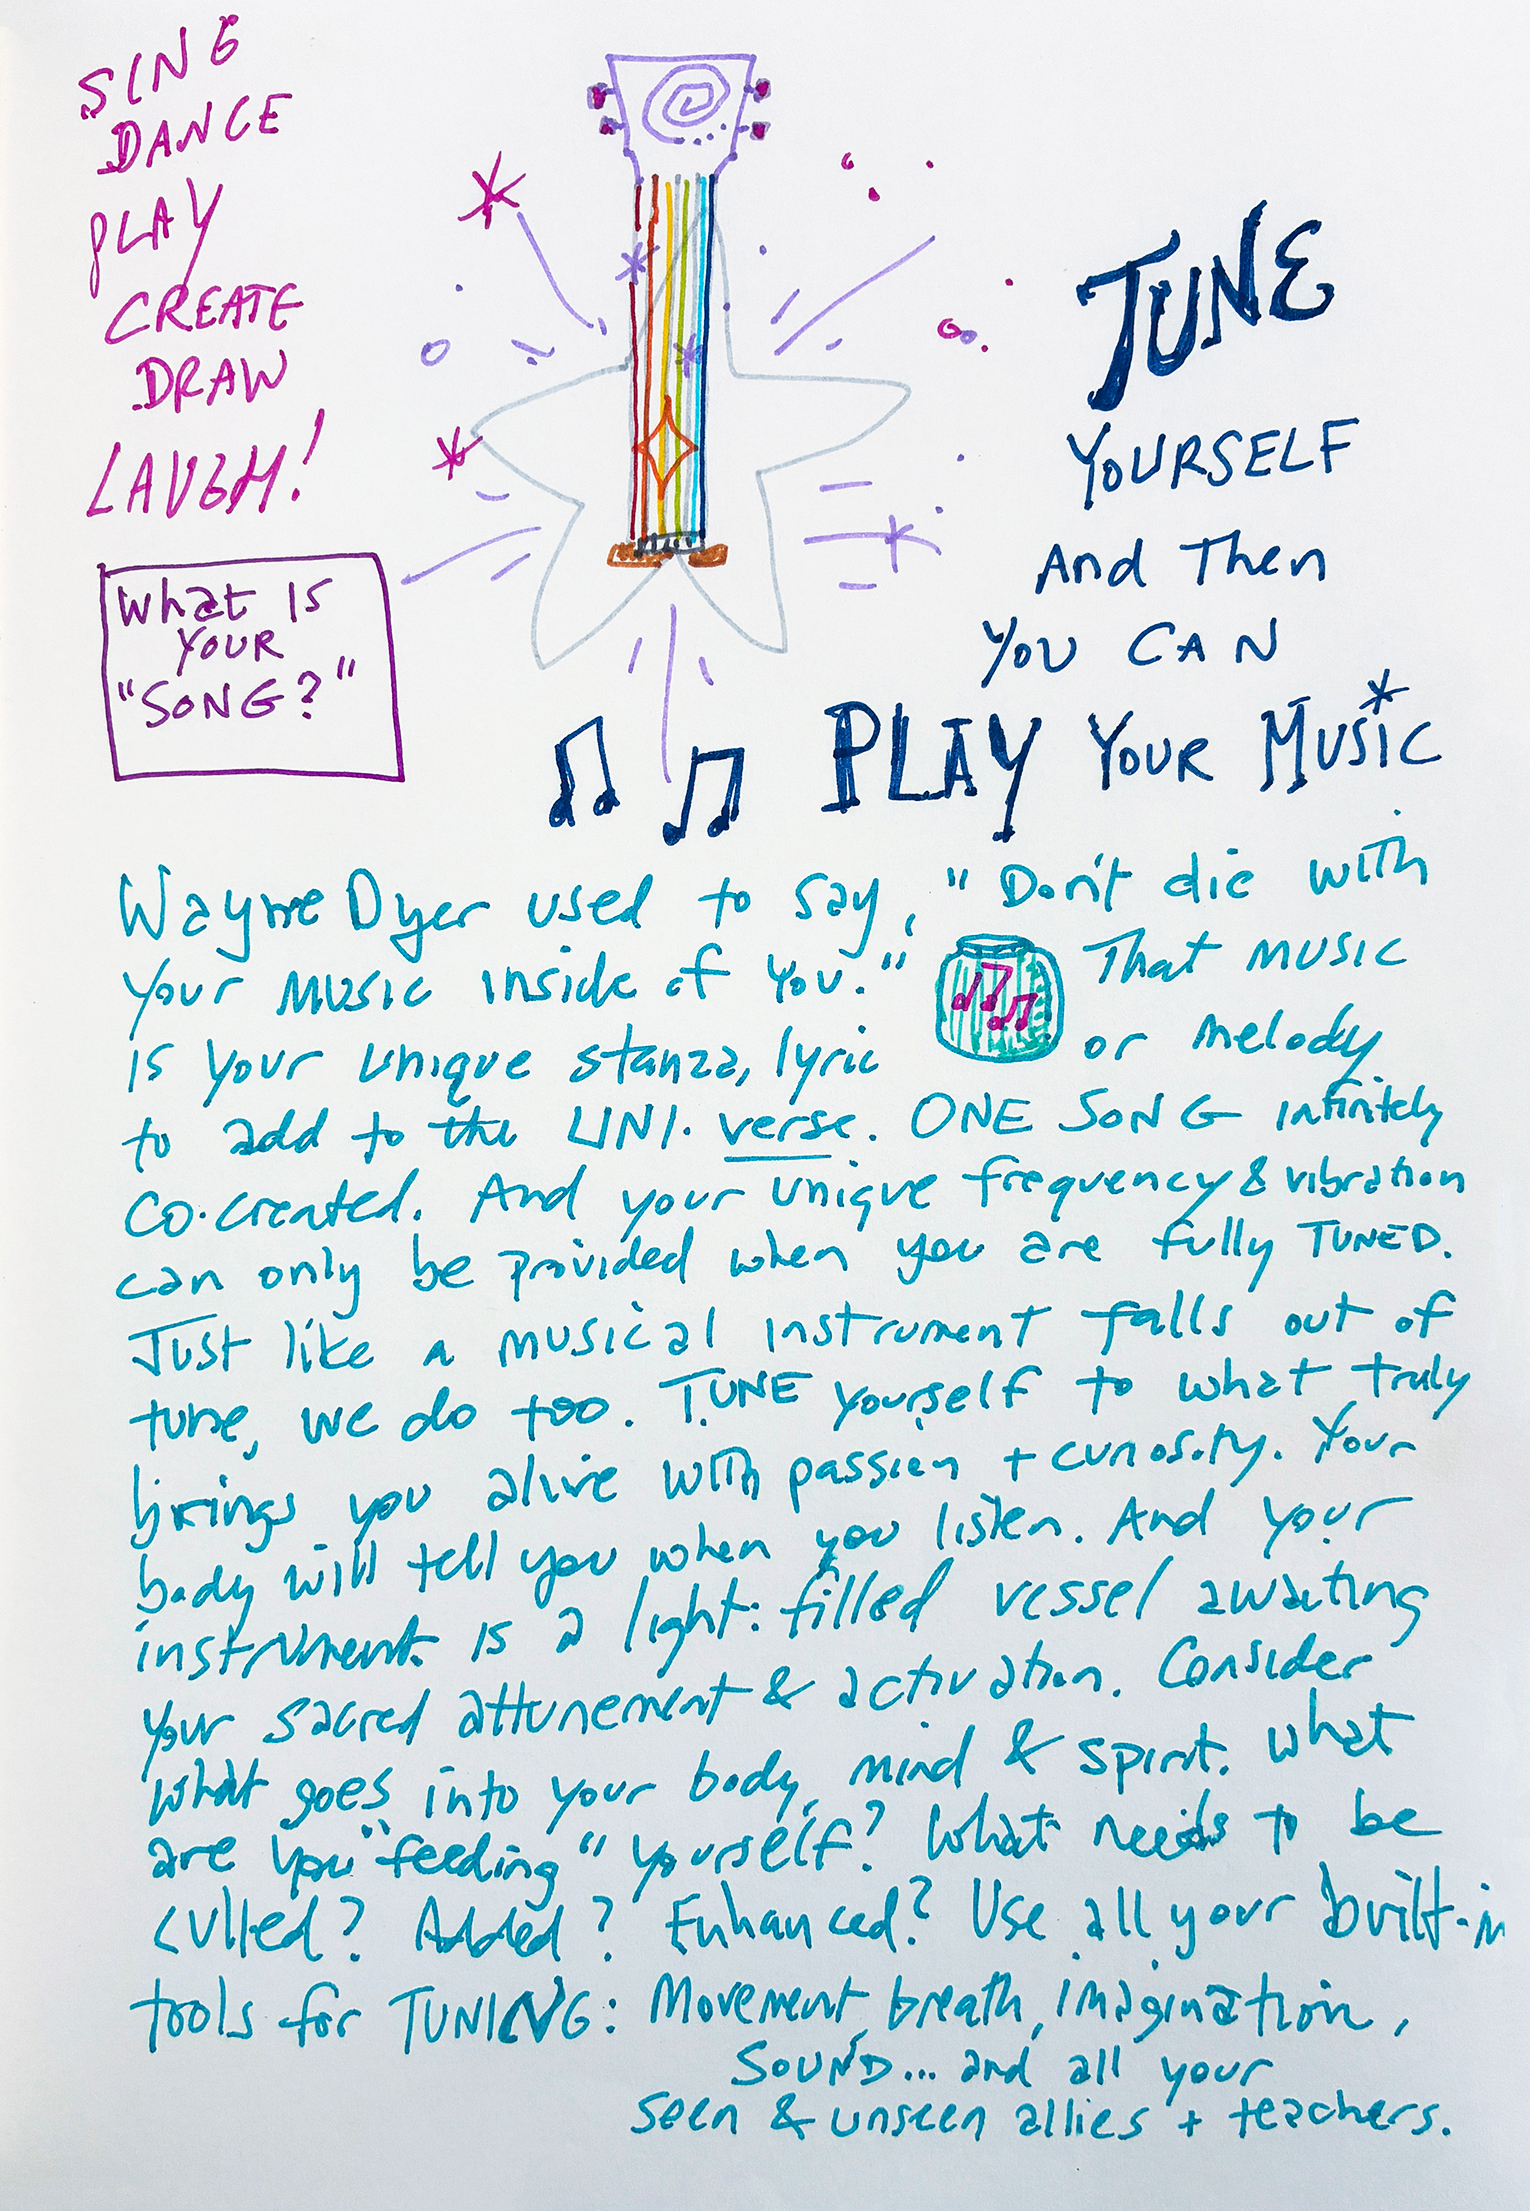 SING
DANCE
PLAY
CREATE
DRAW
LAUGH!
What IS
YOUR
"SONG?"
TUNE
YOURSELF
And Then
YOU CAN
PLAY YOUR MUSIC
Wayne Dyer used to say, "Don't die with
your music inside of you." That music
is your unique stanza, lyric or melody
to add to the UNI·verse. ONE SONG infinitely
co·created. And your unique frequency & vibration
can only be provided when you are fully TUNED.
Just like a musical instrument falls out of
tune, we do too. TUNE yourself to what truly
brings you alive with passion + curiosity. Your
body will tell you when you listen. And your
instrument is a light·filled vessel awaiting
your sacred attunement & activation. Consider
what goes into your body, mind & spirit. What
are you "feeding" yourself? What needs to be
culled? Added? Enhanced? Use all your built-in
tools for TUNING: Movement, breath, imagination,
SOUND... and all your
seen & unseen allies + teachers.